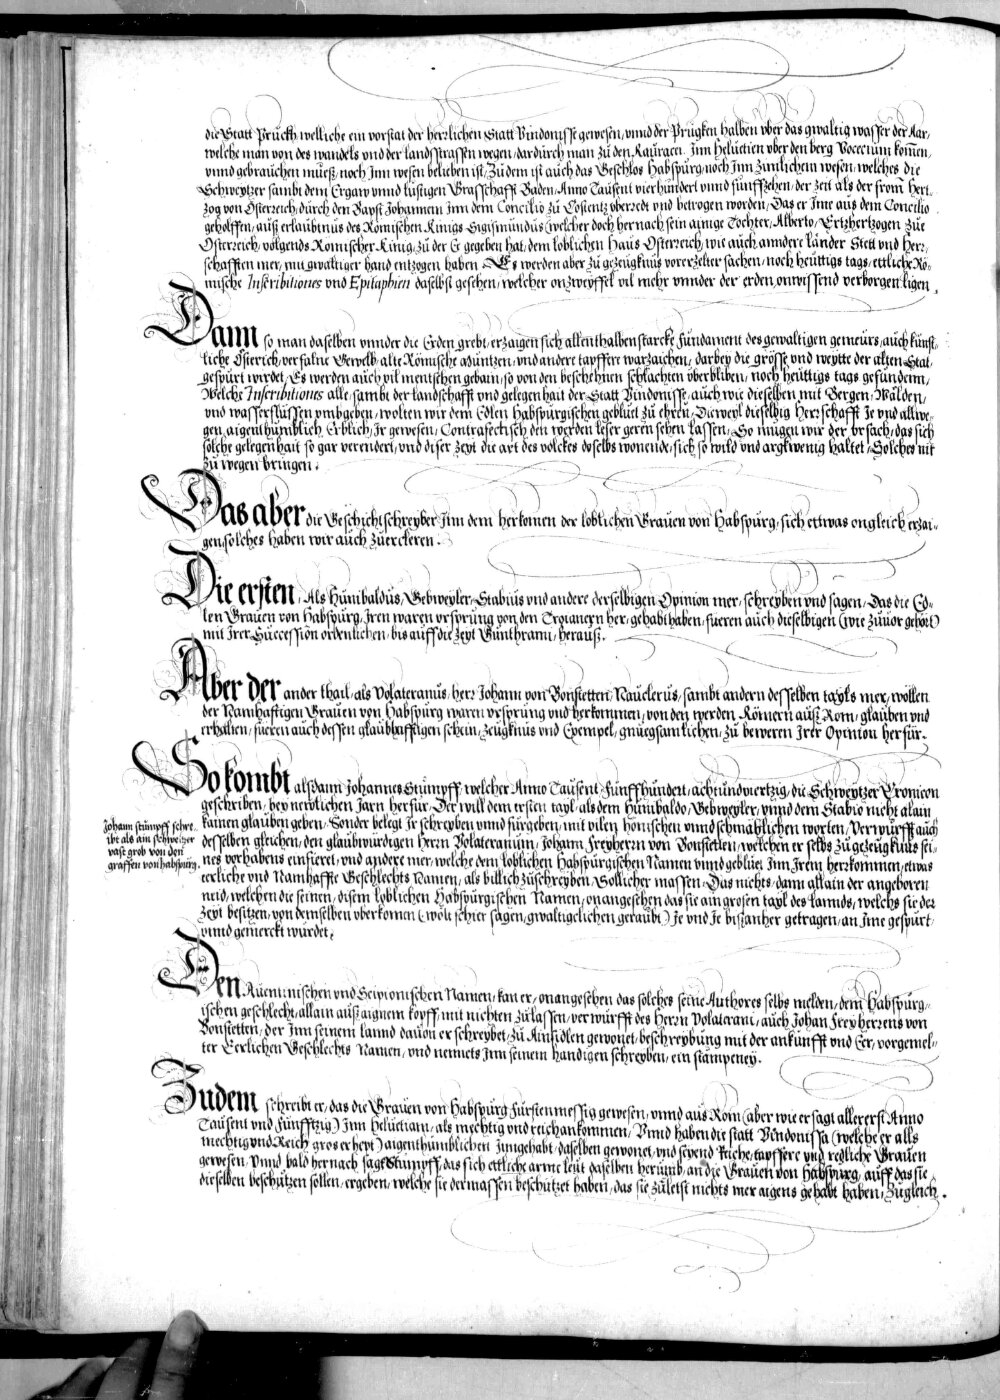 die Statt Prückh, welliche ein vorstat der herrlichen Statt Vindonisse gewesen, vnnd der Prügken halben vber das gwaltig wasser der Aar,
welche man von des wandels vnd der landsstrassen wegen, dardurch man zu den Rauracen, Jnn Heluetien vber den berg Vocetium kom̄en,
vnnd gebrauchen müesß, noch Jnn wesen beliben ist, Zu dem ist auch das Geschlos Habspurg, noch Jnn zimlichem wesen, welches die
Schweytzer sambt dem Ergaw vnnd lustigen Graffschafft Baden, Anno Tausent vierhundert vnnd fünffzehen, der zeit als der from̄ Hert-
zog von Osterreich, durch den Bapst Johannem Jnn dem Concilio zu Costentz vberredt vnd betrogen worden, Das er Jme aus dem Concilio
geholffen, auß erlaubtnus des Römischen Künigs Sigismundus (welcher doch hernach sein ainige Tochter, Alberto, Ertzhertzogen zue
Osterreich, volgends Romischer König, zu der E gegeben hat, dem loblichen Haus Osterreich, wie auch anndere länder Stett vnd Herr-
schafften mer, mit gwaltiger hand entzogen haben. Es werden aber zu gezeugknus vorerzelter sachen, noch heuttigs tags, ettliche Rö-
mische Inscribtiones vnd Epitaphien daselbst gesehen, welcher onzweyffel vil mehr vnnder der erden, onwissend verborgen ligen.
Dann so man daselben vnnder die Erden grebt, erzaigen sich allenthalben starcke Fundament des gewaltigen gemeurs, auch künst-
liche Esterich, verfalne Gewelb, alte Römische Müntzen, vnd andere tapffere warzaichen, darbey die grösse vnd weytte der alten Stat,
gespürt würdet, Es werden auch vil mentschen gebain, so von den beschehnen schlachten vberbliben, noch heuttigs tags gefundenn,
Welche Inscribtiones alle, sambt der landschafft vnd gelegenhait der Statt Vindonisse, auch wie dieselben mit Bergen, Wälden,
vnd wasserflüssen vmbgeben, wolten wir dem Edlen Habspurgischen geblüet zu ehren, Dieweyl dieselbig Herrschafft Je vnd allwe-
gen, aigenthumblich Erblich, Jr gewesen, Contrafectisch den werden leser geren sehen lassen, So mügen wir der vrsach, das sich
solche gelegenhait so gar verendert, vnd diser zeyt die art des volckes doselbs wonende, sich so wild vnd argkwenig haltet, Solches nit
zu wegen bringen.
Das aber die Geschichtschreyber Jnn dem herkomen der loblichen Grauen von Habspurg, sich ettwas ongleich erzai-
gen, solches haben wir auch zuercleren.
Die ersten, Als Hunibaldus, Gebweyler, Stabius vnd andere derselbigen Opinion mer, schreyben vnd sagen, Das die Ed-
len Grauen von Habspurg, Jren waren vrsprung von den Troianern her, gehabt haben, fueren auch dieselbigen (wie zuuor gehört)
mit Jrer Succession ordenlichen, bis auff die zeyt Gunthrami, herauß.
Aber der ander thail, als Volateranus, herr Johann von Bonstetten, Nauclerus, sambt andern desselben tayls mer, wöllen
der Namhafftigen Grauen von Habspurg waren vrsprung vnd herkommen, von den werden Römern auß Rom, glauben vnd
erhalten, fueren auch dessen glaubhafftigen schein, zeugknus vnd Exempel, gnuegsamlichen, zu beweren Jrer Opinion herfür.
So kombt alsdann Johannes Stümpff, welcher Anno Tausent Fünffhundert, achtundviertzig, die Schweytzer Cronicon
geschriben, bey newlichen Jarn herfür, Der will dem ersten tayl, als dem Hunibaldo, Gebweyler, vnnd dem Stabio nicht alain
kainen glauben geben, Sonder belegt Jr schreyben vnnd fürgeben, mit vilen honischen vnnd schmächlichen worten, Verwürfft auch
desselben gleichen, den glaubwürdigen Herrn Volateranum, Johann Freyherrn von Bonstetten, welchen er selbs zu gezeugknus sei-
nes vorhabens einfieret, vnd andere mer, welche dem loblichen Habspürgischen Namen vnnd geblüet Jnn Jrem herrkommen, etwas
eerliche vnd Namhaffte Geschlechts Namen, als billich zuschreyben, Sollicher massen, Das nichts, dann allain der angeboren
neid, welchen die seinen, disem loblichen Habspürgischen Namen, onangesehen das sie ain grosen tayl des lannds, welchs sie der
zeyt besitzen, von demselben vberkomen (wolt schier sagen, gwaltigclichen geraubt) Je vnd Je bißanher getragen, an Jme gespürt
vnnd gemerckt würdet.
Johann stümpff schre-
ibt als ain schweitzer
vast grob von den
graffen von habspurg.
Den Auentinischen vnd Scipionischen Namen, kan er, onangesehen das solches seine Authores selbs melden, dem Habspürg-
ischen geschlecht, allain auß aignem kopff, mit nichten zulassen, verwürfft des Herrn Volaterani, auch Johan Freyherrens von
Bonstetten, der Jnn seinem lannd dauon er schreybet, zu Ainsidlen gewonet, beschreybung mit der ankunfft vnd Eer, vorgemel-
ter Eerlichen Geschlechts Namen, vnd nennets Jnn seinem handigen schreyben, ein stampeney.
Zudem schreibt er, das die Grauen von Habspurg Fürstenmessig gewesen, vnnd aus Rom (aber wie er sagt allererst Anno
Tausent vnd Fünfftzig) Jnn Heluetiam, als mechtig vnd reich ankommen, Vnnd haben die statt Vindonissa (welche er alls
mechtig vnd Reich gros erhept) aigenthumblichen Jnngehabt, daselben gewonet, vnd seyend Reiche, tapffere vnd redliche Grauen
gewesen, Vnnd bald hernach sagt Stümpff, das sich ettliche arme leut daselben herumb, an die Grauen von Habspurg, auff das sie
dieselben beschutzen sollen, ergeben, welche sie dermassen beschützet haben, das sie zuletst nichts mer aigens gehabt haben, Zugleich.